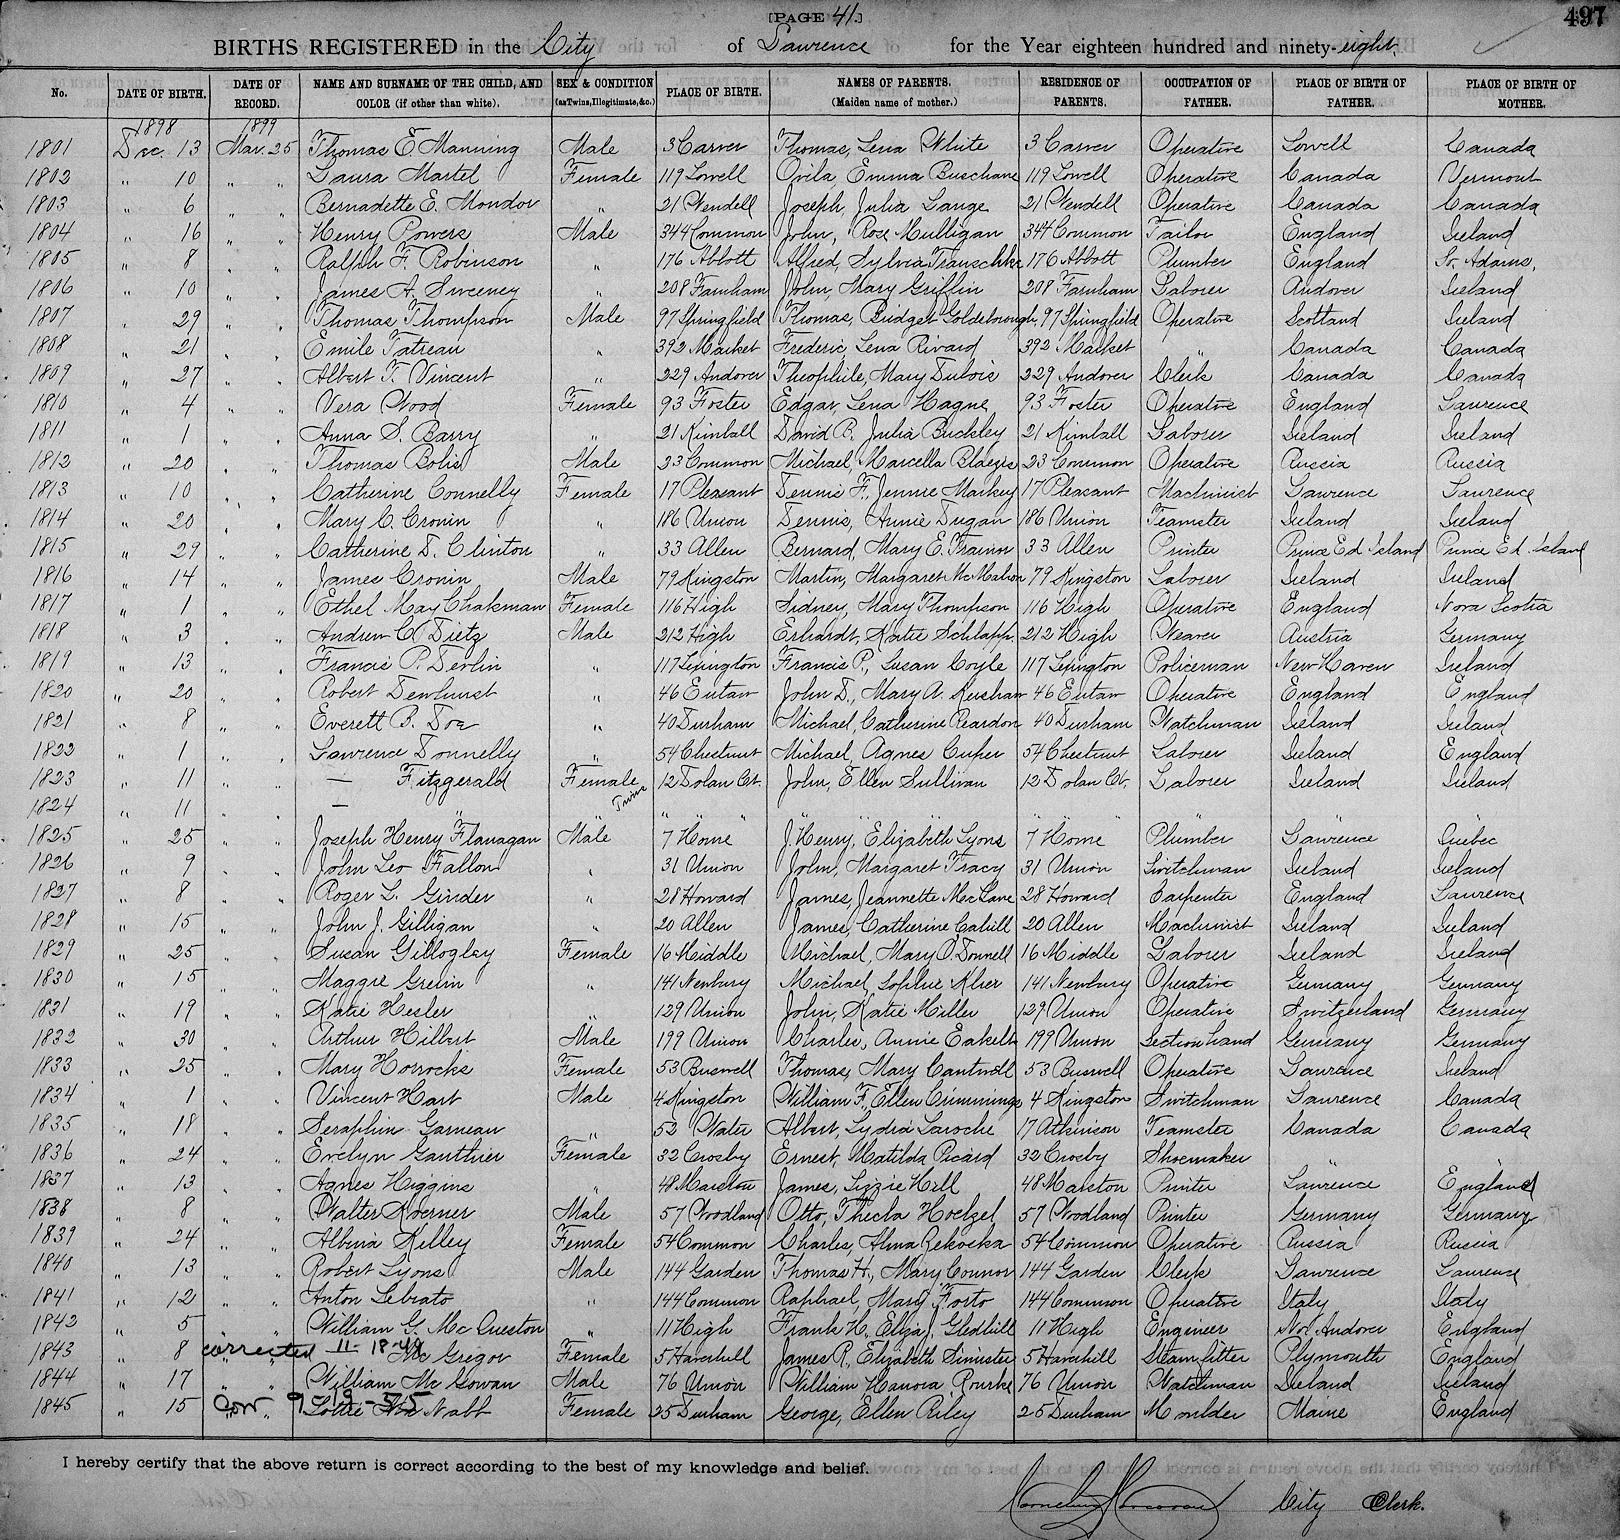 [PAGE 41.]
497
BIRTHS REGISTERED in the City of Lawrence for the Year eighteen hundred and ninety-eight.
No. DATE OF BIRTH. DATE OF RECORD. NAME AND SURNAME OF THE CHILD, AND COLOR (if other than white). SEX & CONDITION (as Twins, Illegitimate, &c.) PLACE OF BIRTH. NAMES OF PARENTS. (Maiden name of mother.) RESIDENCE OF PARENTS. OCCUPATION OF FATHER. PLACE OF BIRTH OF FATHER. PLACE OF BIRTH OF MOTHER.
1898 1899
1801 Dec. 13 Mar. 25 Thomas E. Manning Male 3 Carver Thomas, Lena White 3 Carver Operative Lowell Canada
1802 " 10 " " Laura Martel Female 119 Lowell Ovila, Emma Buschane 119 Lowell Operative Canada Vermont
1803 " 6 " " Bernadette E. Mondor " 21 Wendell Joseph, Julia Lange 21 Wendell Operative Canada Canada
1804 " 16 " " Henry Powers Male 344 Common John, Rose Mulligan 344 Common Tailor England Ireland
1805 " 8 " " Ralph F. Robinson " 176 Abbott Alfred, Sylvia Trauschke 176 Abbott Plumber England No. Adams,
1806 " 10 " " James A. Sweeney " 208 Farnham John, Mary Griffin 208 Farnham Laborer Andover Ireland
1807 " 29 " " Thomas Thompson Male 97 Springfield Thomas, Bridget Goldsborough, 97 Springfield Operative Scotland Ireland
1808 " 21 " " Emile Tatreau " 392 Market Frederic, Lena Rivard 392 Market " Canada Canada
1809 " 27 " " Albert T. Vincent " 229 Andover Theophile, Mary Dubois 229 Andover Clerk Canada Canada
1810 " 4 " " Vera Wood Female 93 Foster Edgar, Lena Hague 93 Foster Operative England Lawrence
1811 " 1 " " Anna S. Barry " 21 Kimball David B. Julia Buckley 21 Kimball Laborer Ireland Ireland
1812 " 20 " " Thomas Bolis Male 23 Common Michael, Marcella Blazgis 23 Common Operative Russia Russia
1813 " 10 " " Catherine Connelly Female 17 Pleasant Dennis F., Jennie Markey 17 Pleasant Machinist Lawrence Lawrence
1814 " 20 " " Mary C. Cronin " 186 Union Dennis, Annie Dugan 186 Union Teamster Ireland Ireland
1815 " 29 " " Catherine D. Clinton " 33 Allen Bernard, Mary E. Trainor 33 Allen Printer Prince Ed. Island Prince Ed. Island
1816 " 14 " " James Cronin Male 79 Kingston Martin, Margaret McMahon 79 Kingston Laborer Ireland Ireland
1817 " 1 " " Ethel May Chakman Female 116 High Sidney, Mary Thompson 116 High Operative England Nova Scotia
1818 " 3 " " Andrew C. Dietz Male 212 High Erhardt, Katie Schlapp 212 High Weaver Austria Germany
1819 " 13 " " Francis P. Devlin " 117 Lexington Francis P., Susan Coyle 117 Lexington Policeman New Haven Ireland
1820 " 20 " " Robert Dewhurst " 46 Eutaw John D., Mary A. Kershaw 46 Eutaw Operative England England
1821 " 8 " " Everett B. Doe " 40 Durham Michael, Catherine Reardon 40 Durham Watchman Ireland Ireland
1822 " 1 " " Lawrence Donnelly " 54 Chestnut Michael, Agnes Cuper 54 Chestnut Laborer Ireland England
1823 " 11 " " — Fitzgerald Female Twins 12 Dolan Ct. John, Ellen Sullivan 12 Dolan Ct. Laborer Ireland Ireland
1824 " 11 " " — " " " " " " " " "
1825 " 25 " " Joseph Henry Flanagan Male 7 Home J. Henry, Elizabeth Lyons 7 Home Plumber Lawrence Quebec
1826 " 9 " " John Leo Fallon " 31 Union John, Margaret Tracy 31 Union Switchman Ireland Ireland
1827 " 8 " " Roger L. Ginder " 28 Howard James, Jeannette McLane 28 Howard Carpenter England Lawrence
1828 " 15 " " John J. Gilligan " 20 Allen James, Catherine Cahill 20 Allen Machinist Ireland Ireland
1829 " 25 " " Susan Gillogley Female 16 Middle Michael, Mary O'Donnell 16 Middle Laborer Ireland Ireland
1830 " 15 " " Maggie Grelin " 141 Newbury Michael, Sophie Klier 141 Newbury Operative Germany Germany
1831 " 19 " " Katie Hesler " 129 Union John, Katie Miller 129 Union Operative Switzerland Germany
1832 " 30 " " Arthur Hilbert Male 199 Union Charles, Annie Eakelt 199 Union Section hand Germany Germany
1833 " 25 " " Mary Horrocks Female 53 Buswell Thomas, Mary Cantwell 53 Buswell Operative Lawrence Ireland
1834 " 1 " " Vincent Hart Male 4 Kingston William F., Ellen Crimmings 4 Kingston Switchman Lawrence Canada
1835 " 18 " " Seraphin Garneau " 52 Water Albert, Lydia Laroche 17 Atkinson Teamster Canada Canada
1836 " 24 " " Evelyn Gauthier Female 32 Crosby Ernest, Matilda Picard 32 Crosby Shoemaker " "
1837 " 13 " " Agnes Higgins " 48 Marston James, Lizzie Hill 48 Marston Printer Lawrence England
1838 " 8 " " Walter Koerner Male 57 Woodland Otto, Thecla Hoelzel 57 Woodland Printer Germany Germany
1839 " 24 " " Albina Kelley Female 54 Common Charles, Alma Rekoska 54 Common Operative Russia Russia
1840 " 13 " " Robert Lyons Male 144 Garden Thomas H., Mary Connor 144 Garden Clerk Lawrence Lawrence
1841 " 12 " " Anton Lebrato " 144 Common Raphael, Mary Forto 144 Common Operative Italy Italy
1842 " 5 " " William G. McQueston " 11 High Frank H., Eliza J. Gledhill 11 High Engineer No. Andover England
1843 " 8 corrected 11-18-41 McGregor Female 5 Haverhill James R., Elizabeth Simister 5 Haverhill Steamfitter Plymouth England
1844 " 17 " " William McGowan Male 76 Union William Hanora Rourke 76 Union Watchman Ireland Ireland
1845 " 15 Corr 9-19-55 Lottie McNabb Female 25 Durham George, Ellen Riley 25 Durham Moulder Maine England
I hereby certify that the above return is correct according to the best of my knowledge and belief.
City Clerk.